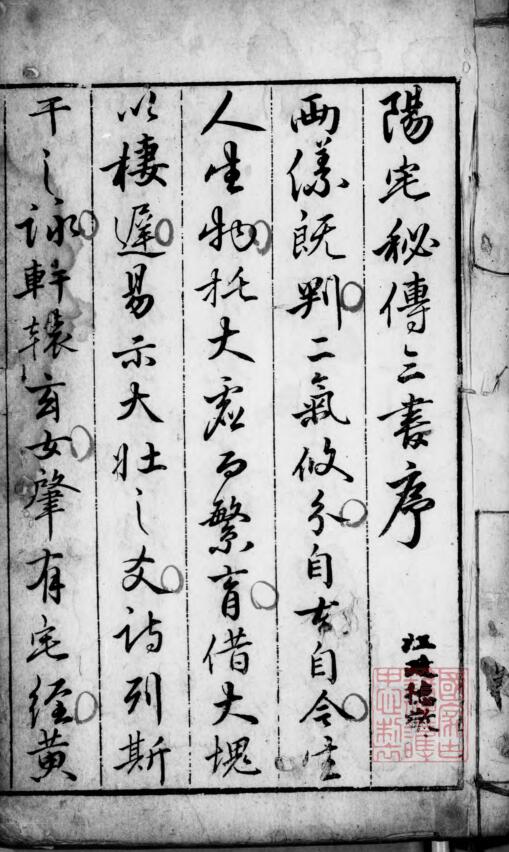 陽宅秘傳三書序
兩儀既判二氣攸分自古自今生
人生物托大虛而繁育借大塊
以棲遲易示大壯之爻詩列斯
干之詠軒轅玄女肇有宅經黃